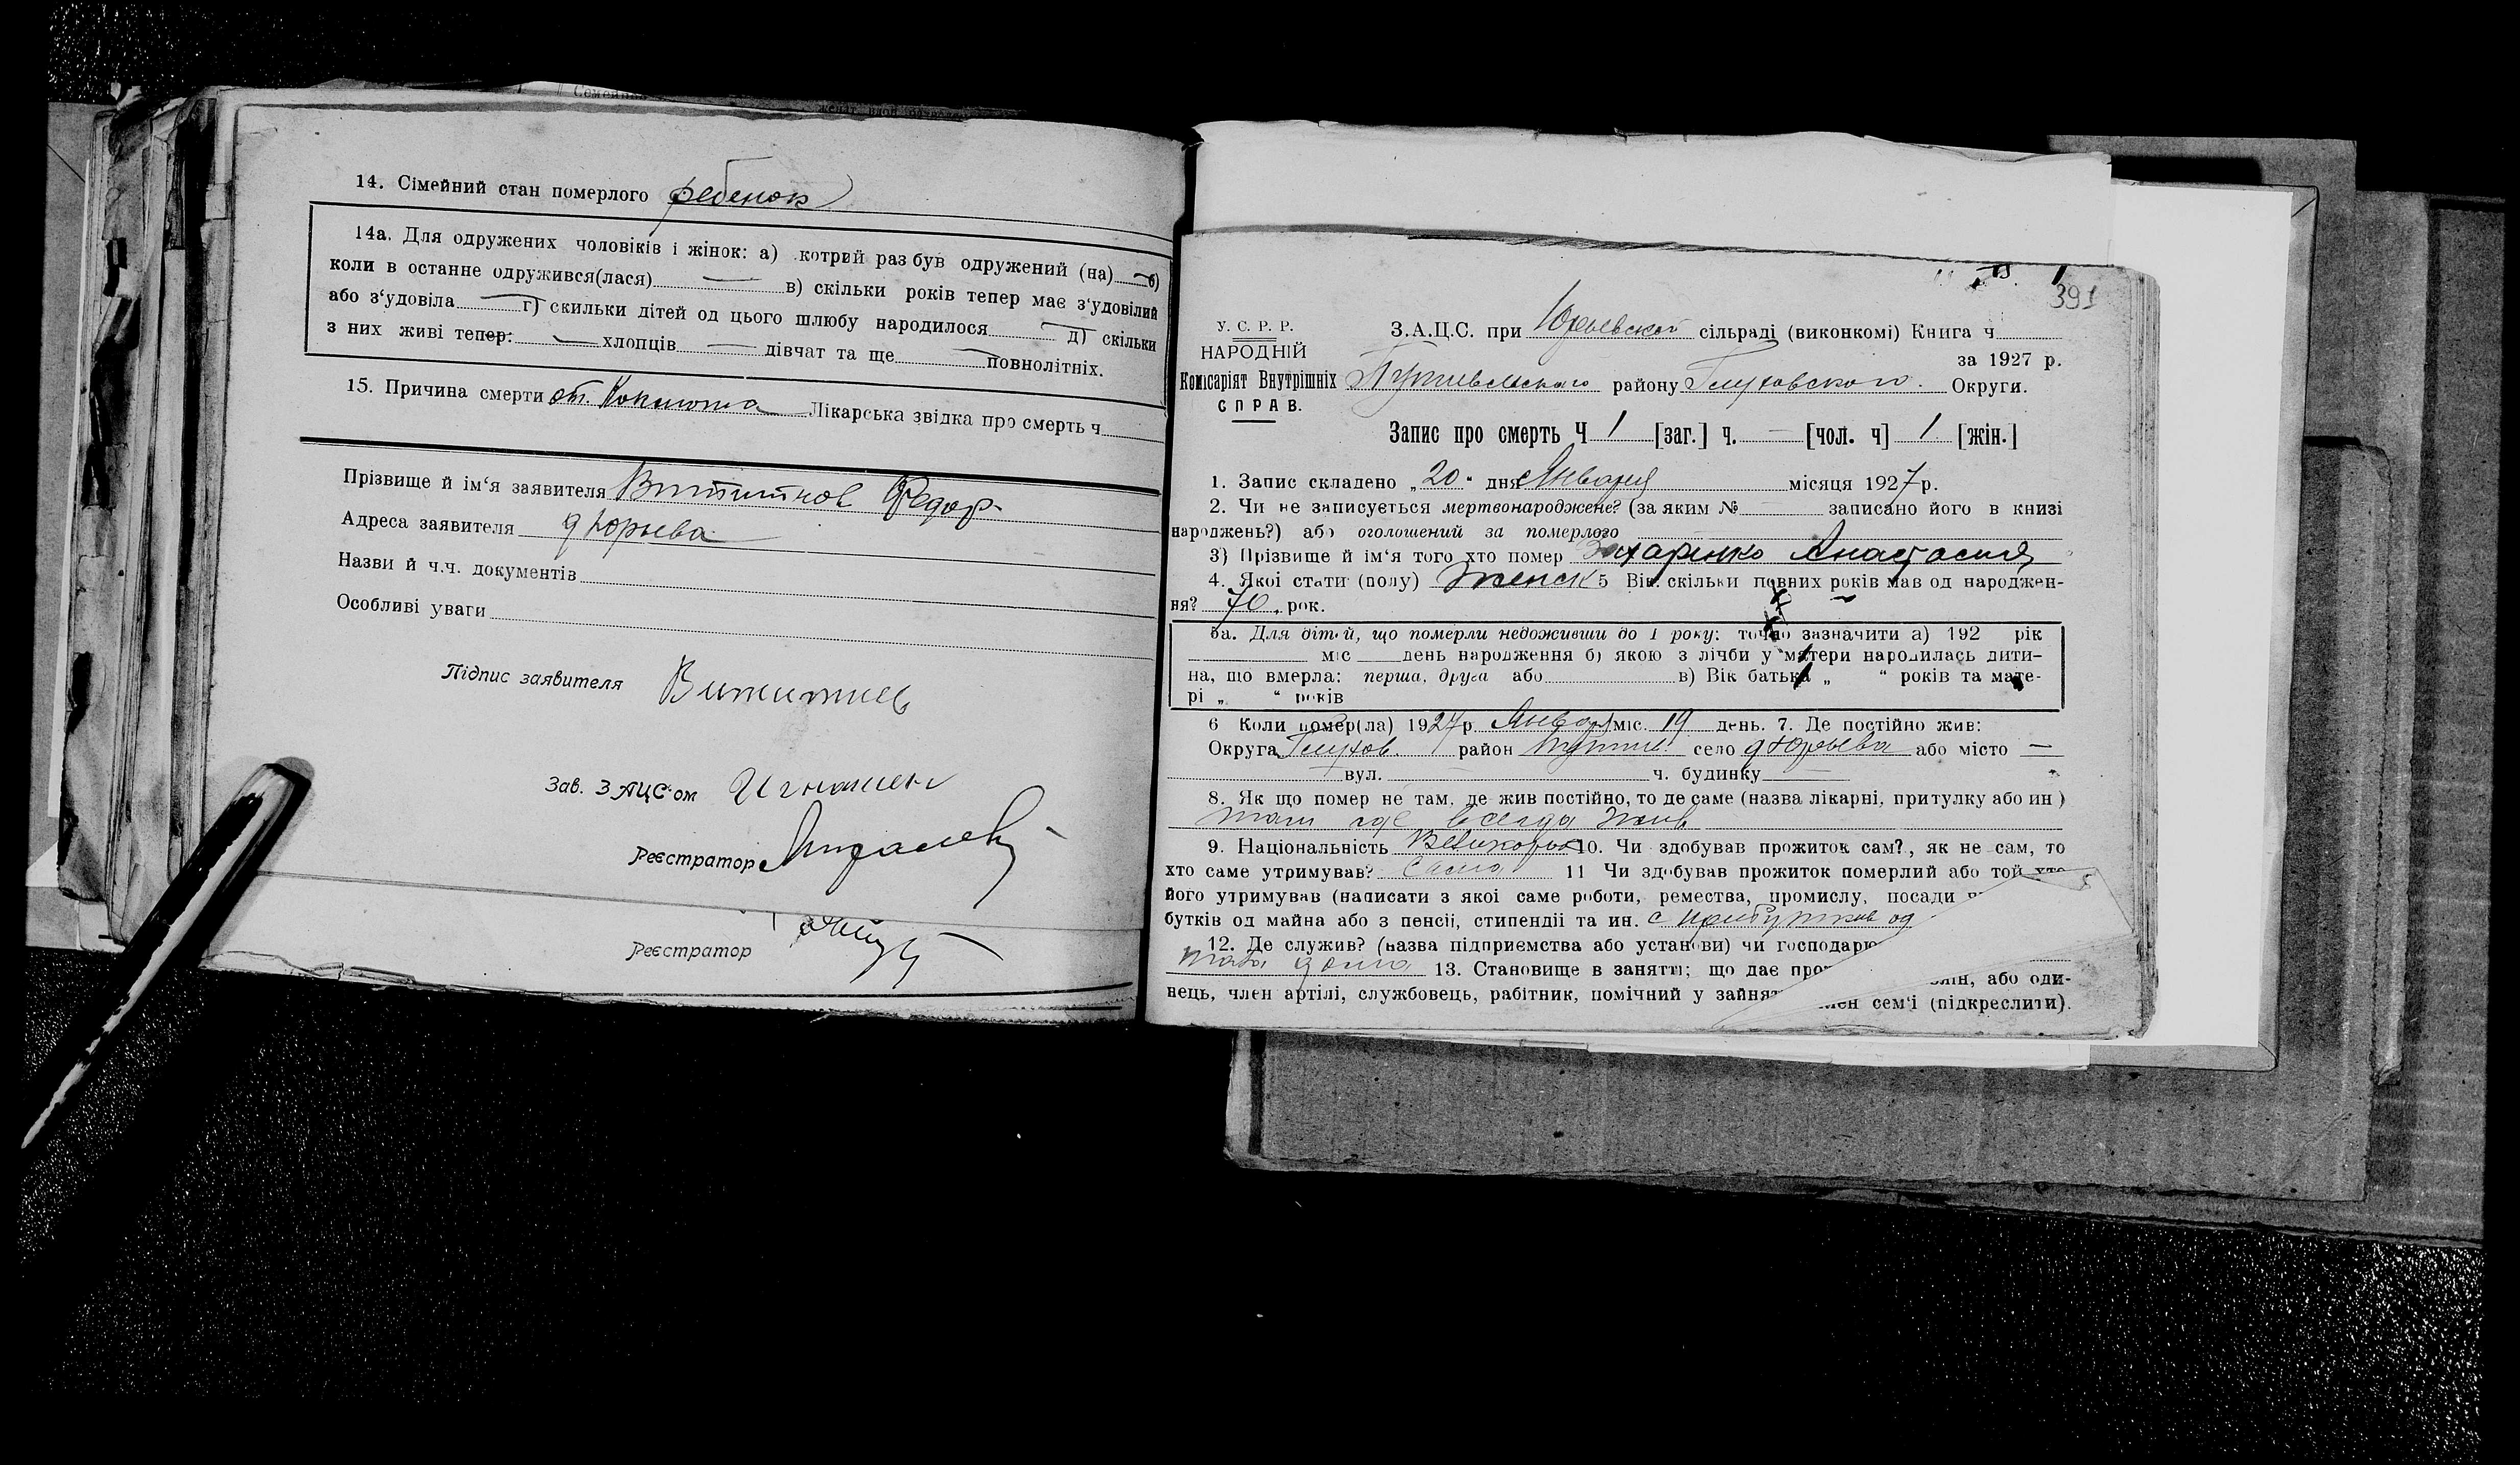 14. Сімейний стан померлого ребенок
14а. Для одружених чоловіків і жінок: а) котрий раз був одружений (на) — б)
коли в останне одружився(лася) — в) скільки років тепер має з'удовілий
або з'удовіла — г) скильки дітей од цього шлюбу народилося — д) скільки
з них живі тепер: — хлопців — дівчат та ще — повнолітніх.
15. Причина смерти от Коклюша Лікарська звідка про смерть ч
Прізвище й ім'я заявителя Федор
Адреса заявителя д Юрьева
Назви й ч.ч. документів
Особливі уваги
Підпис заявителя
Зав. ЗАЦС'ом
Реєстратор
Реєстратор
391
У. С. Р. Р.
НАРОДНІЙ
Комісаріят Внутрішніх
СПРАВ.
З.А.Ц.С. при Юрьевской сільраді (виконкомі) Книга ч
за 1927 р.
Путивльского району Глуховского Округи.
Запис про смерть Ч 1 [заг.] ч. — [чол. ч] 1 [жін.]
1. Запис складено „20" дня Января місяця 1927р.
2. Чи не записується мертвонароджене? (за яким № — записано його в книзі
народжень?) або оголошений за померлого
3) Прізвище й ім'я того хто помер Захаренко Анастасия
4. Якоі стати (полу) Женск 5 Вік. скільки повних років мав од народжен-
ня? 70 рок.
5а. Для дітей, що померли недоживши до 1 року: точно зазначити а) 192 рік
міс день народження б) якою з лічби у матери народилась дити-
на, що вмерла: перша, друга або в) Вік батька „ " років та мате-
рі „ " років
6 Коли помер(ла) 1927р Января міс. 19 день. 7. Де постійно жив:
Округа Глухов. район Путив. село д Юрьева або місто —
— вул. — ч. будинку —
8. Як що помер не там, де жив постійно, то де саме (назва лікарні, притулку або ин)
там где всегда жив
9. Національність Великорос 10. Чи здобував прожиток сам?, як не сам, то
хто саме утримував? Сама 11 Чи здобував прожиток померлий або той хто
його утримував (написати з якоі саме роботи, ремества, промислу, посади
бутків од майна або з пенсіі, стипендіі та ин. с прибутков од
12. Де служив? (назва підприємства або установи) чи господарю
дома 13. Становище в занятті; що дає про або оди-
нець, член артілі, службовець, рабітник, помічний у зайнят член сем'і (підкреслити).